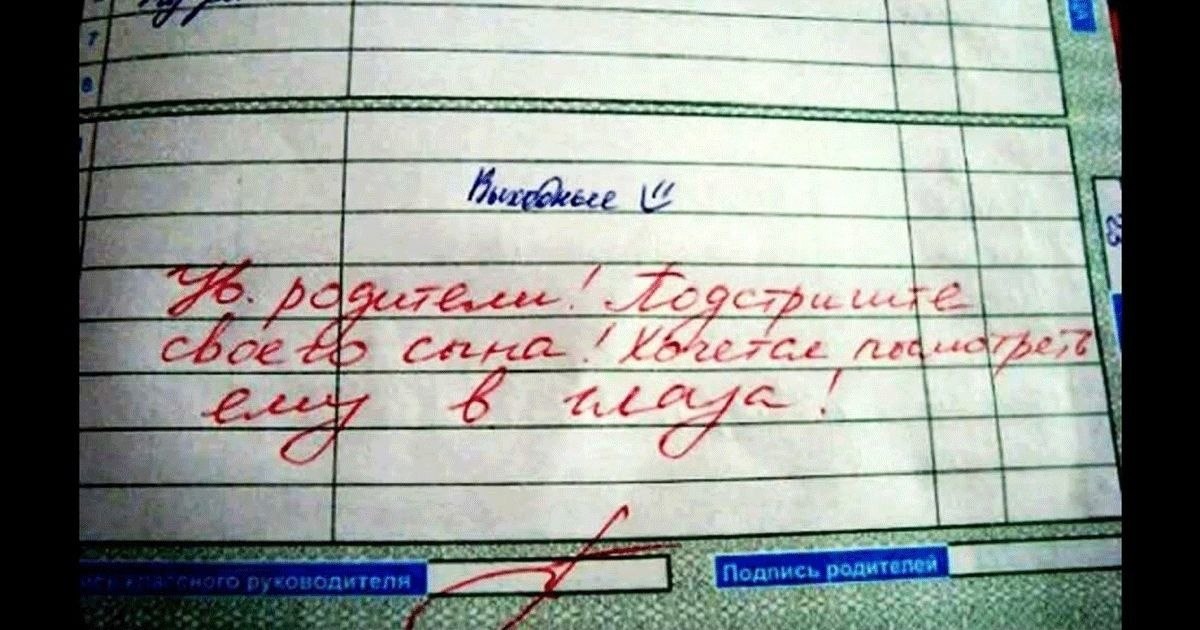 7
8
Выходные
Ув. родители! Подстригите
своего сына! Хочется посмотреть
ему в глаза!
классного руководителя
Подпись родителей
23